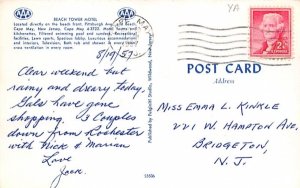 AAA
BEACH TOWER MOTEL
Located directly on the beach front. Pittsburgh Ave. and Beach
Cape May, New Jersey. Cape May 4-3232. Motel Rooms and
Kitchenettes. Filtered swimming pool and sundeck. Recreational
facilities. Lawn sports. Spacious lobby. Luxurious accommodations
and interiors. Television. Both tub and shower in every
area in this exclusive residential
YA
8/19/57
Clear weekend but
rainy and dreary today.
Gals have gone
shopping. 3 Couples
down from Rochester
with Nick & Marian
Love
Published by Dellpoint Studio, Wildwood,
13506
POST CARD
Address
2¢
MISS EMMA L. KINKLE
221 W. HAMPTON AVE,
BRIDGETON,
N. J.